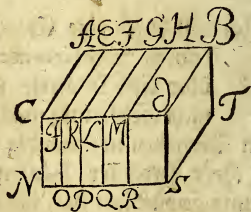 A E F G H B
C D T
I K L M
N O P Q R S